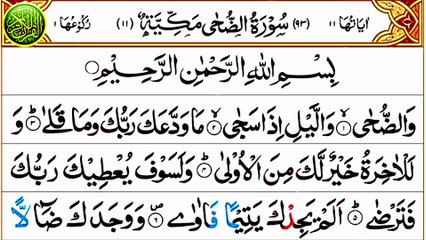 اٰیَاتُهَا ١١ (٩٣) سُوْرَةُ الضُّحٰى مَكِّيَّةٌ (١١) رُكُوْعُهَا ١
بِسْمِ اللّٰهِ الرَّحْمٰنِ الرَّحِيْمِ
وَالضُّحٰى ۙ﴿١﴾ وَالَّيْلِ اِذَا سَجٰى ۙ﴿٢﴾ مَا وَدَّعَكَ رَبُّكَ وَمَا قَلٰى ؕ﴿٣﴾ وَ
لَلْاٰخِرَةُ خَيْرٌ لَّكَ مِنَ الْاُوْلٰى ؕ﴿٤﴾ وَلَسَوْفَ يُعْطِيْكَ رَبُّكَ
فَتَرْضٰى ؕ﴿٥﴾ اَلَمْ يَجِدْكَ يَتِيْمًا فَاٰوٰى ۪﴿٦﴾ وَوَجَدَكَ ضَآلًّا